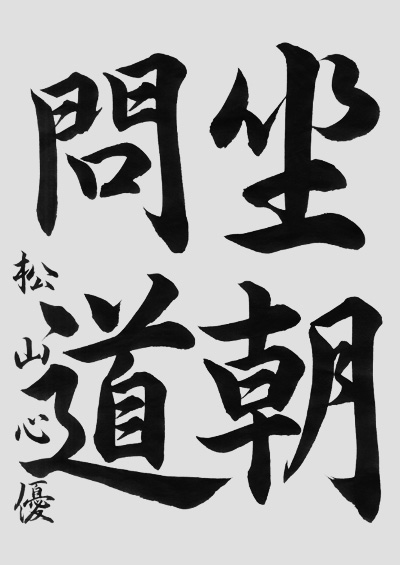 坐朝
問道
松山心優